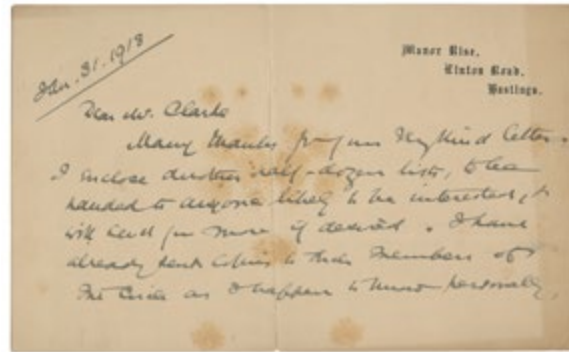 Jan. 31. 1918
Manor Rise,
Linton Road,
Hastings.
Dear Mr. Clarke
Many thanks for your very kind letter.
I enclose another half-dozen lists, to be
handed to anyone likely to be interested, &
will send you more if desired. I have
already sent copies to those members of
the Circle as I happen to know personally,